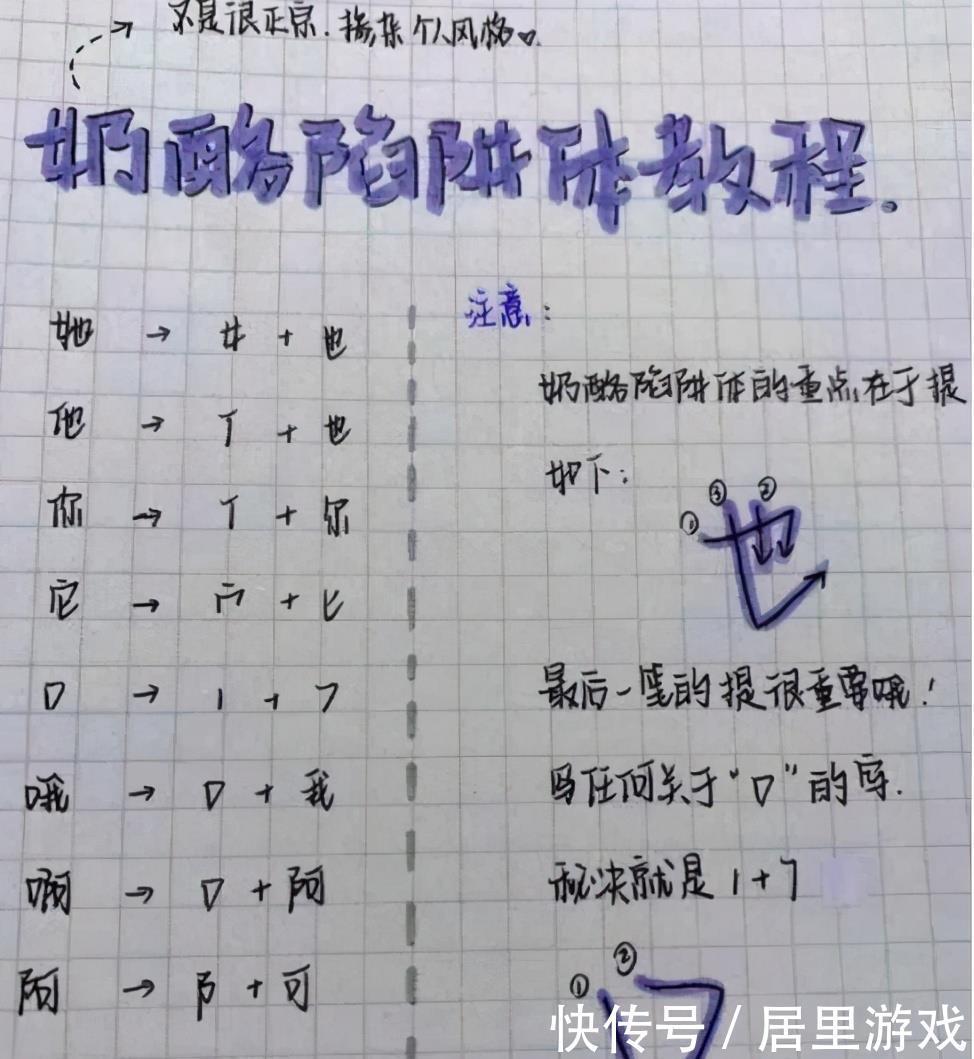 不是很正宗.掺杂个人风格
奶酪陷阱体教程.
她 → 女 + 也
他 → 亻 + 也
你 → 亻 + 尔
它 → 宀 + 匕
口 → 丨 + ㇆
哦 → 口 + 我
啊 → 口 + 阿
阿 → 阝 + 可
注意:
奶酪陷阱体的重点在于提
如下:
① ③ ② 也
最后一笔的提很重要哦!
写任何关于“口”的字.
秘诀就是 1 + 7
① ②
快传号 / 居里游戏